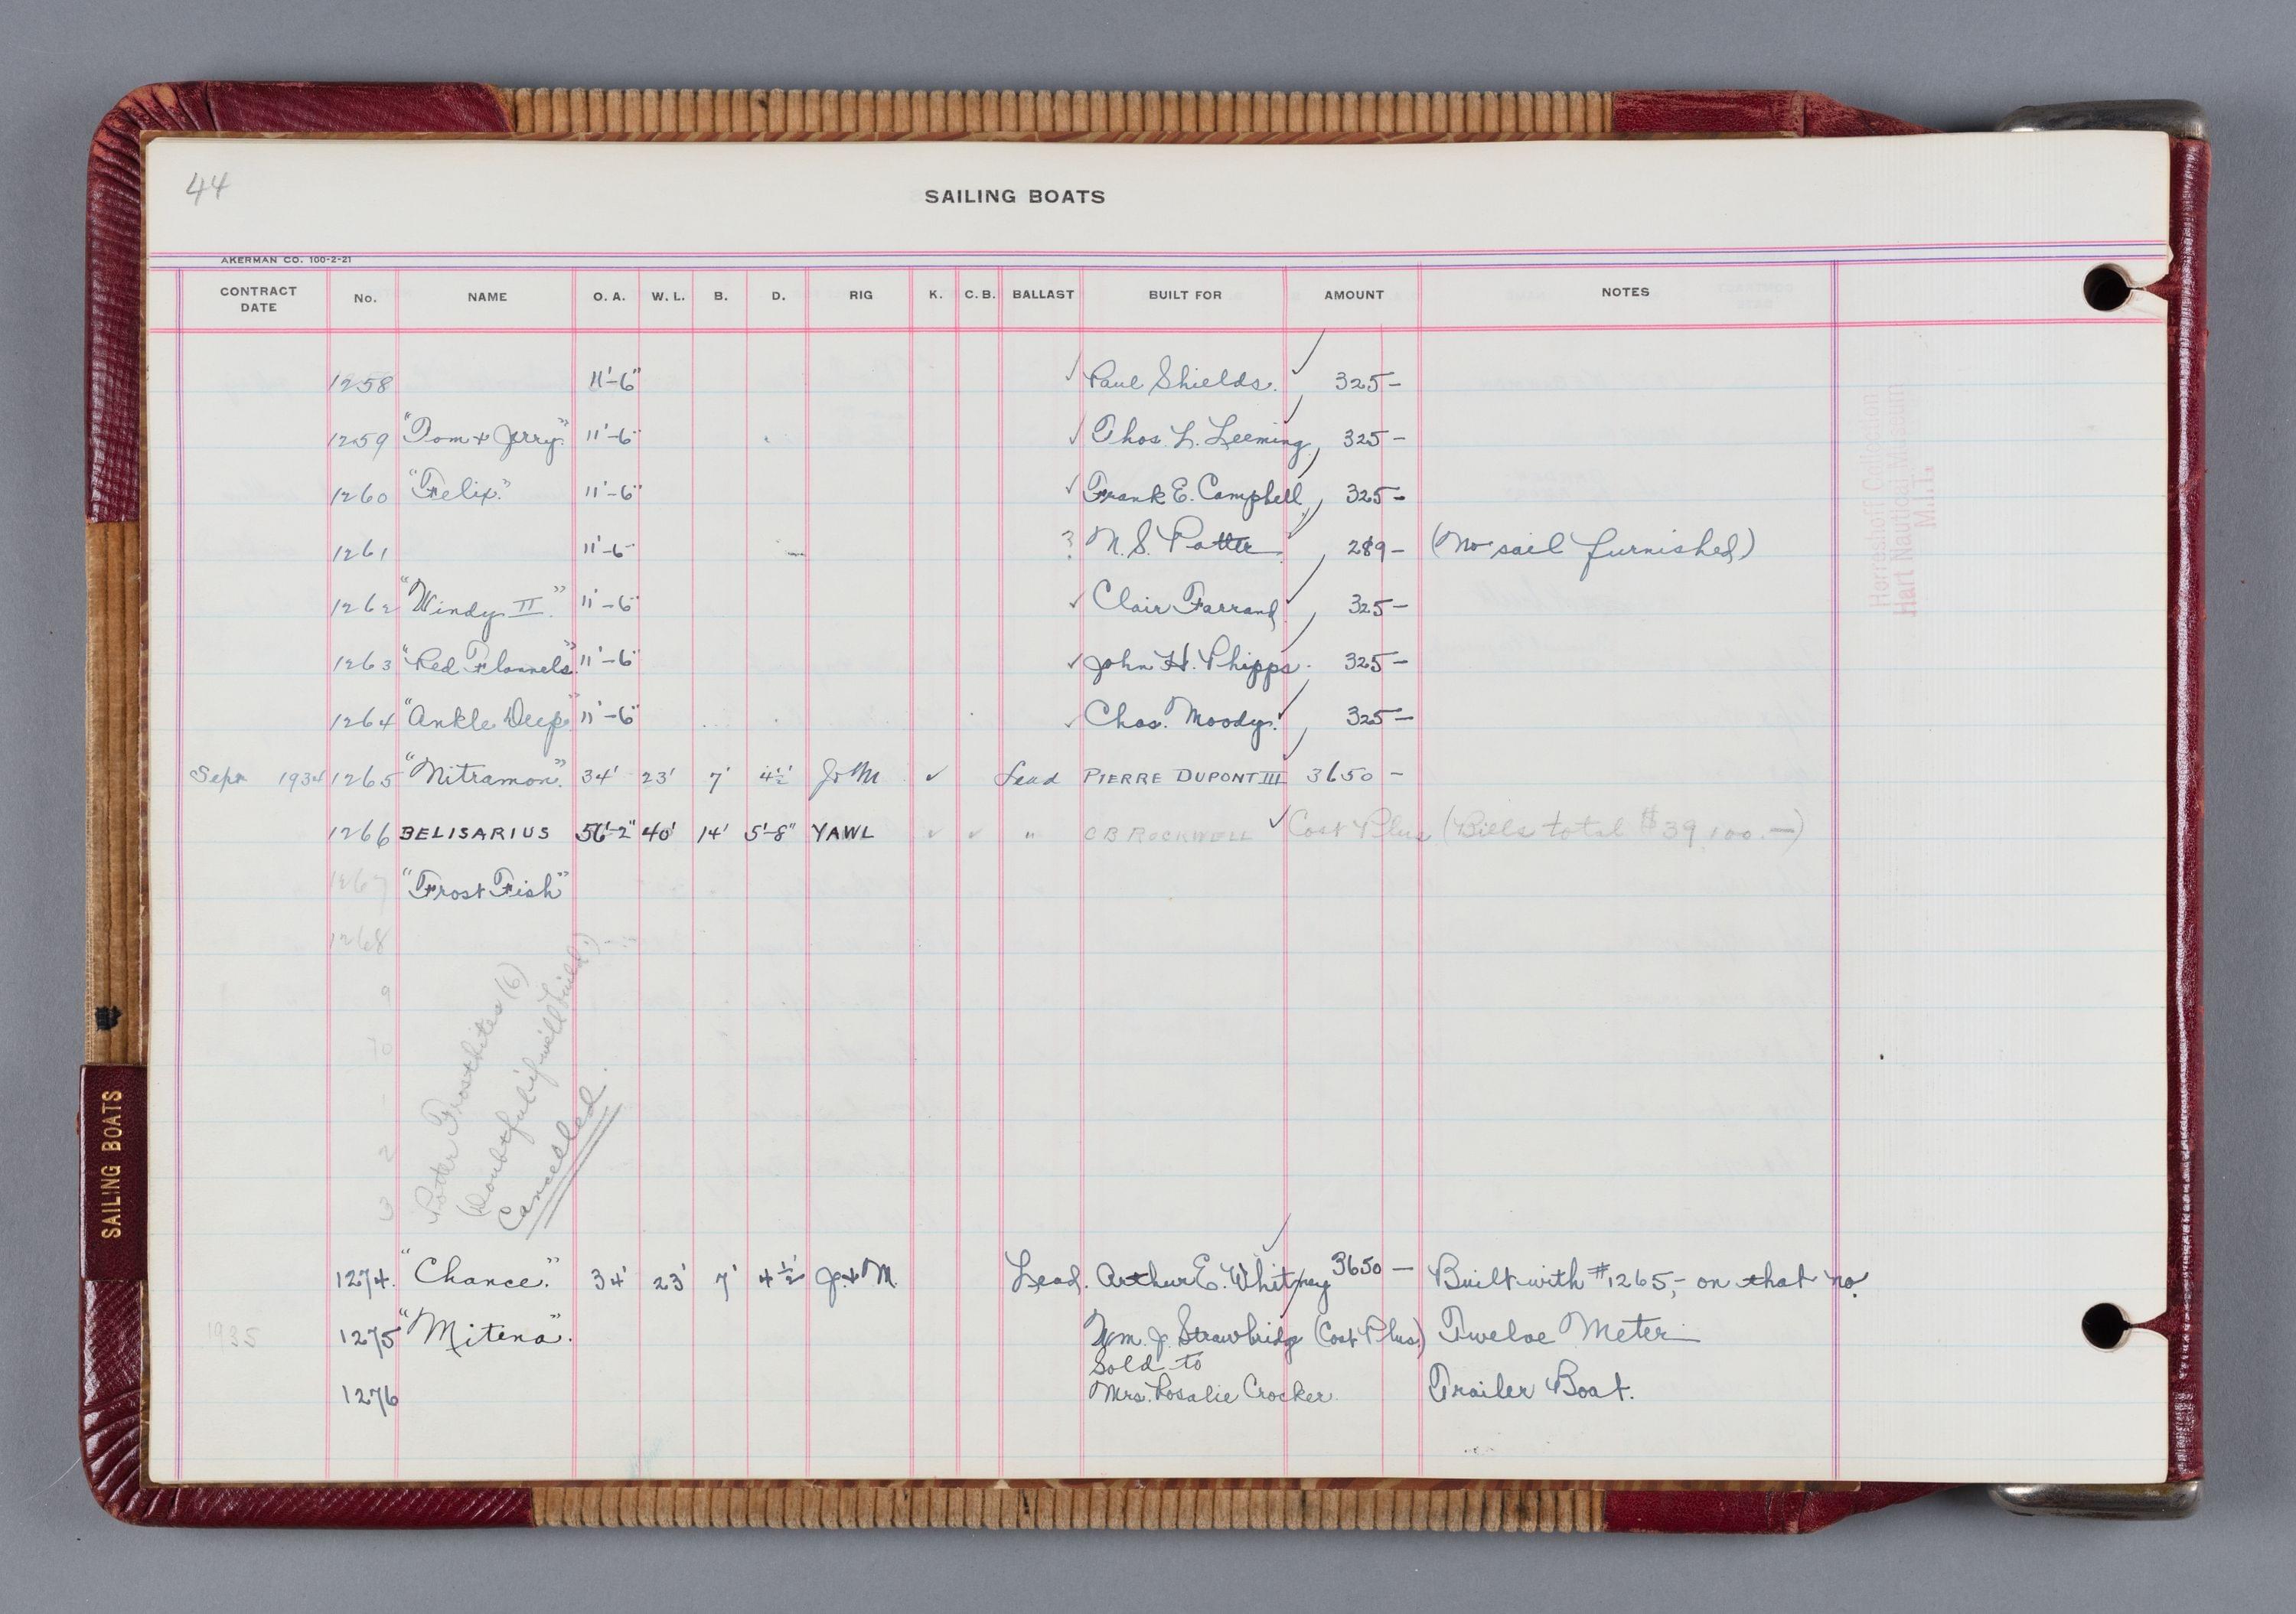 44
SAILING BOATS
AKERMAN CO. 100-2-21
CONTRACT DATE No. NAME O. A. W. L. B. D. RIG K. C. B. BALLAST BUILT FOR AMOUNT NOTES
1258 11'-6" ✓ Paul Shields. ✓ 325-
1259 "Tom & Jerry" 11'-6" ✓ Thos. L. Leeming ✓ 325-
1260 "Felix." 11'-6" ✓ Frank E. Campbell ✓ 325-
1261 11'-6" ? N. S. Potter ✓ 289- (No sail furnished)
1262 "Windy II." 11'-6" ✓ Clair Farrand ✓ 325-
1263 "Red Flannels." 11'-6" ✓ John H. Phipps. ✓ 325-
1264 "Ankle Deep" 11'-6" ✓ Chas. Moody. ✓ 325-
Sept 1934 1265 "Nitramon." 34' 23' 7' 4½' J & M ✓ Lead PIERRE DUPONT III ✓ 3650-
1266 BELISARIUS 56'-2" 40' 14' 5'-8" YAWL ✓ ✓ " C B ROCKWELL ✓ Cost Plus (Bills total $39,100.—)
1267 "Frost Fish"
1268
9
70
1
2
3
Potter Frostbites (6)
(Doubtful if will build.)
Cancelled.
1274. "Chance." 34' 23' 7' 4½' J. & M. Lead. Arthur E. Whitney ✓ 3650- Built with #1265,- on that no.
1935 1275 "Mitena". Wm. J. Strawbridge (Cost Plus.) Twelve Meter
Sold to
1276 Mrs. Rosalie Crocker. Trailer Boat.
Herreshoff Collection
Hart Nautical Museum
M.I.T.
SAILING BOATS